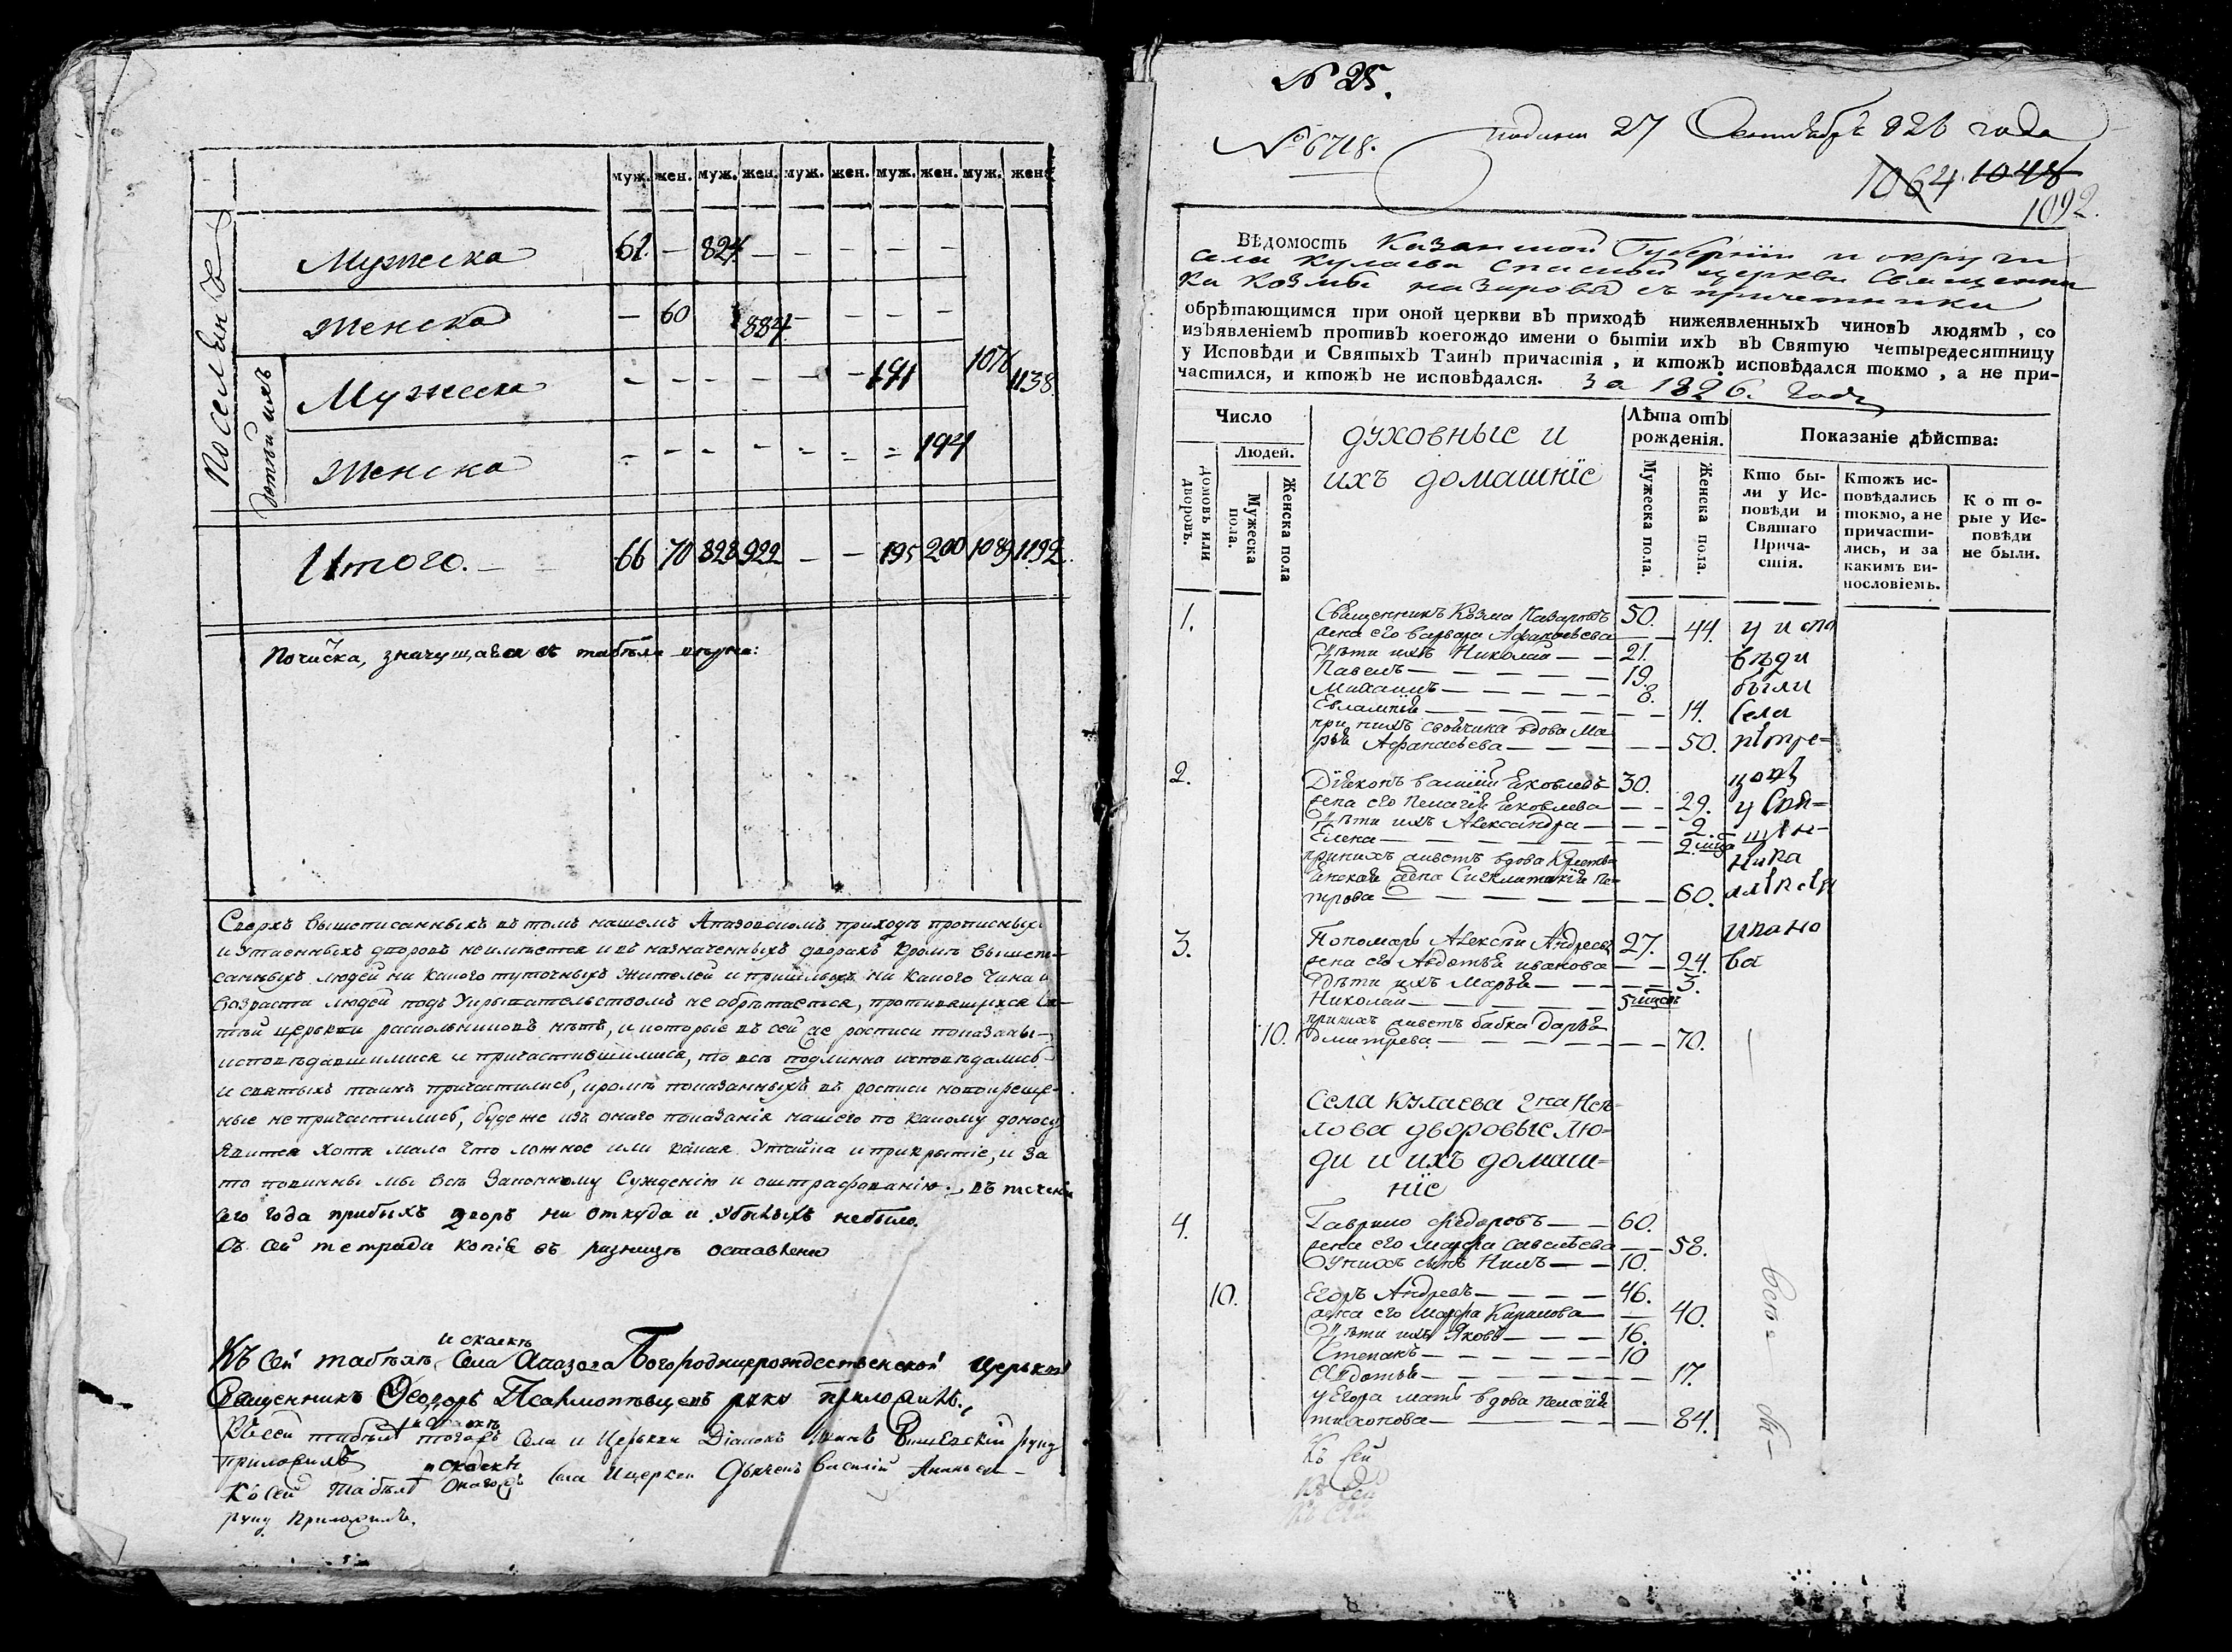 муж. жен. муж. жен. муж. жен. муж. жен. муж. жен.
Поселяне
Мужеска 62. — 824 — — — — —
Женска — 60 884 — — — —
дѣти ихъ
Мужеска — — — — — — 191 1076 1138.
Женска — — — — — — — 194
Итого. — 66 70 828 922 — — 195 200 1089 1192
Почиска, значущаяся въ табѣле
Сверхъ вышеписанныхъ въ томъ нашемъ Апазовскомъ приходѣ прописныхъ
и утаенныхъ дворовъ неимѣется и въ назначенныхъ дворахъ кромѣ вышепи-
санныхъ людей ни какого тутошныхъ жителей и пришлыхъ ни какого чина и
возраста людей подъ укрывательствомъ не обрѣтается, противящихся свя-
тѣй церькви раскольниковъ нѣтъ, и которые въ сей же росписи показаны
исповѣдавшимися и причастившимися, то всѣ подлинно исповѣдались
и святыхъ таинъ причастились, кромѣ показанныхъ въ росписи новокреще-
ные непричастились, буде же изъ онаго показанія нашего по какому доносу
явится хотя мало что ложное или какая утайка и прикрытіе, и за
то повинны мы всѣ законному сужденію и оштрафованію. въ теченіи
сего года прибыхъ дворъ ни откуда и убылыхъ небыло.
съ сей тетради копія въ ризницѣ оставлена
и скаскѣ
Къ сей табѣлѣ села Апазова Богородицерождественской церькви
Священникъ Ѳеодоръ руку приложилъ.
Къ сей табѣлѣ тогожъ села и церькви Діаконъ руку
приложилъ
и скаскѣ
Къ сей табѣлѣ онагожъ села и церкви Дьячекъ Василій Ананьевъ
руку приложилъ.
№ 25.
№ 6718.
подана 27 Сентября 826 года
1064 1048
1092.
Вѣдомость Казанской Губерніи и округи
села Кулаева Спаской церкви Священни
ка Козмы Назарова съ причетники
обрѣтающимся при оной церкви въ приходѣ нижеявленныхъ чиновъ людямъ, со
изъявленіемъ противъ коегождо имени о бытіи ихъ въ Святую четыредесятницу
у Исповѣди и Святыхъ Таинъ причастія, и ктожъ исповѣдался токмо, а не при-
частился, и ктожъ не исповѣдался. за 1826. годъ
Число
Людей.
домовъ или дворовъ.
Мужеска пола.
Женска пола
духовные и
ихъ домашніе
Лѣта отъ рожденія.
Мужеска пола.
Женска пола.
Показаніе дѣйства:
Кто бы-
ли у Ис-
повѣди и
Святаго
Прича-
стія.
Ктожъ ис-
повѣдались
токмо, а не
причасти-
лись, и за
какимъ ви-
нословіемъ.
К о т о-
рые у Ис-
повѣди
не были.
1. Священникъ Козма Назаровъ 50.
жена его Варвара Афанасьева — — 44. у испо
дѣти ихъ Николай — — 21. вѣди
Павелъ — — — — — 19. были
Михаилъ — — — — — 8.
Евлампія — — — — — — — 14. села
при нихъ свойчина вдова Ма
рья Афанасьева — — — — — 50.
2. Діяконъ Василій Яковлевъ 30.
жена его Пелагія Яковлева — — 29.
дѣти ихъ Александра — — — 2.
Елена — — — — — — — 2.
принихъ живетъ вдова
жена Пе-
трова — — — — — — — 60.
3. Пономарь Алексѣй Андреевъ 27. ивано
жена его Авдотья Иванова — — 24. ва
дѣти ихъ Марья — — — — 3.
Николай — — — — 5
принихъ живетъ бабка Дарья
10. Дмитрева — — — — — — 70.
Села Кулаева 2на Нее-
лова дворовые лю-
ди и ихъ домаш-
ніе
4. Гаврило Федоровъ — — 60.
жена его Марфа Савельева — — 58.
у нихъ сынъ Нилъ — — 10.
10. Егоръ Андревъ — — — 46.
жена его Марфа Кирилова — — 40.
дѣти ихъ Яковъ — — — 16.
Степанъ — — — — — 10
Авдотья — — — — — — 17.
у Егора мать вдова Пелагія
Тихонова — — — — — 84.
Къ сей
Къ сей
Къ сей